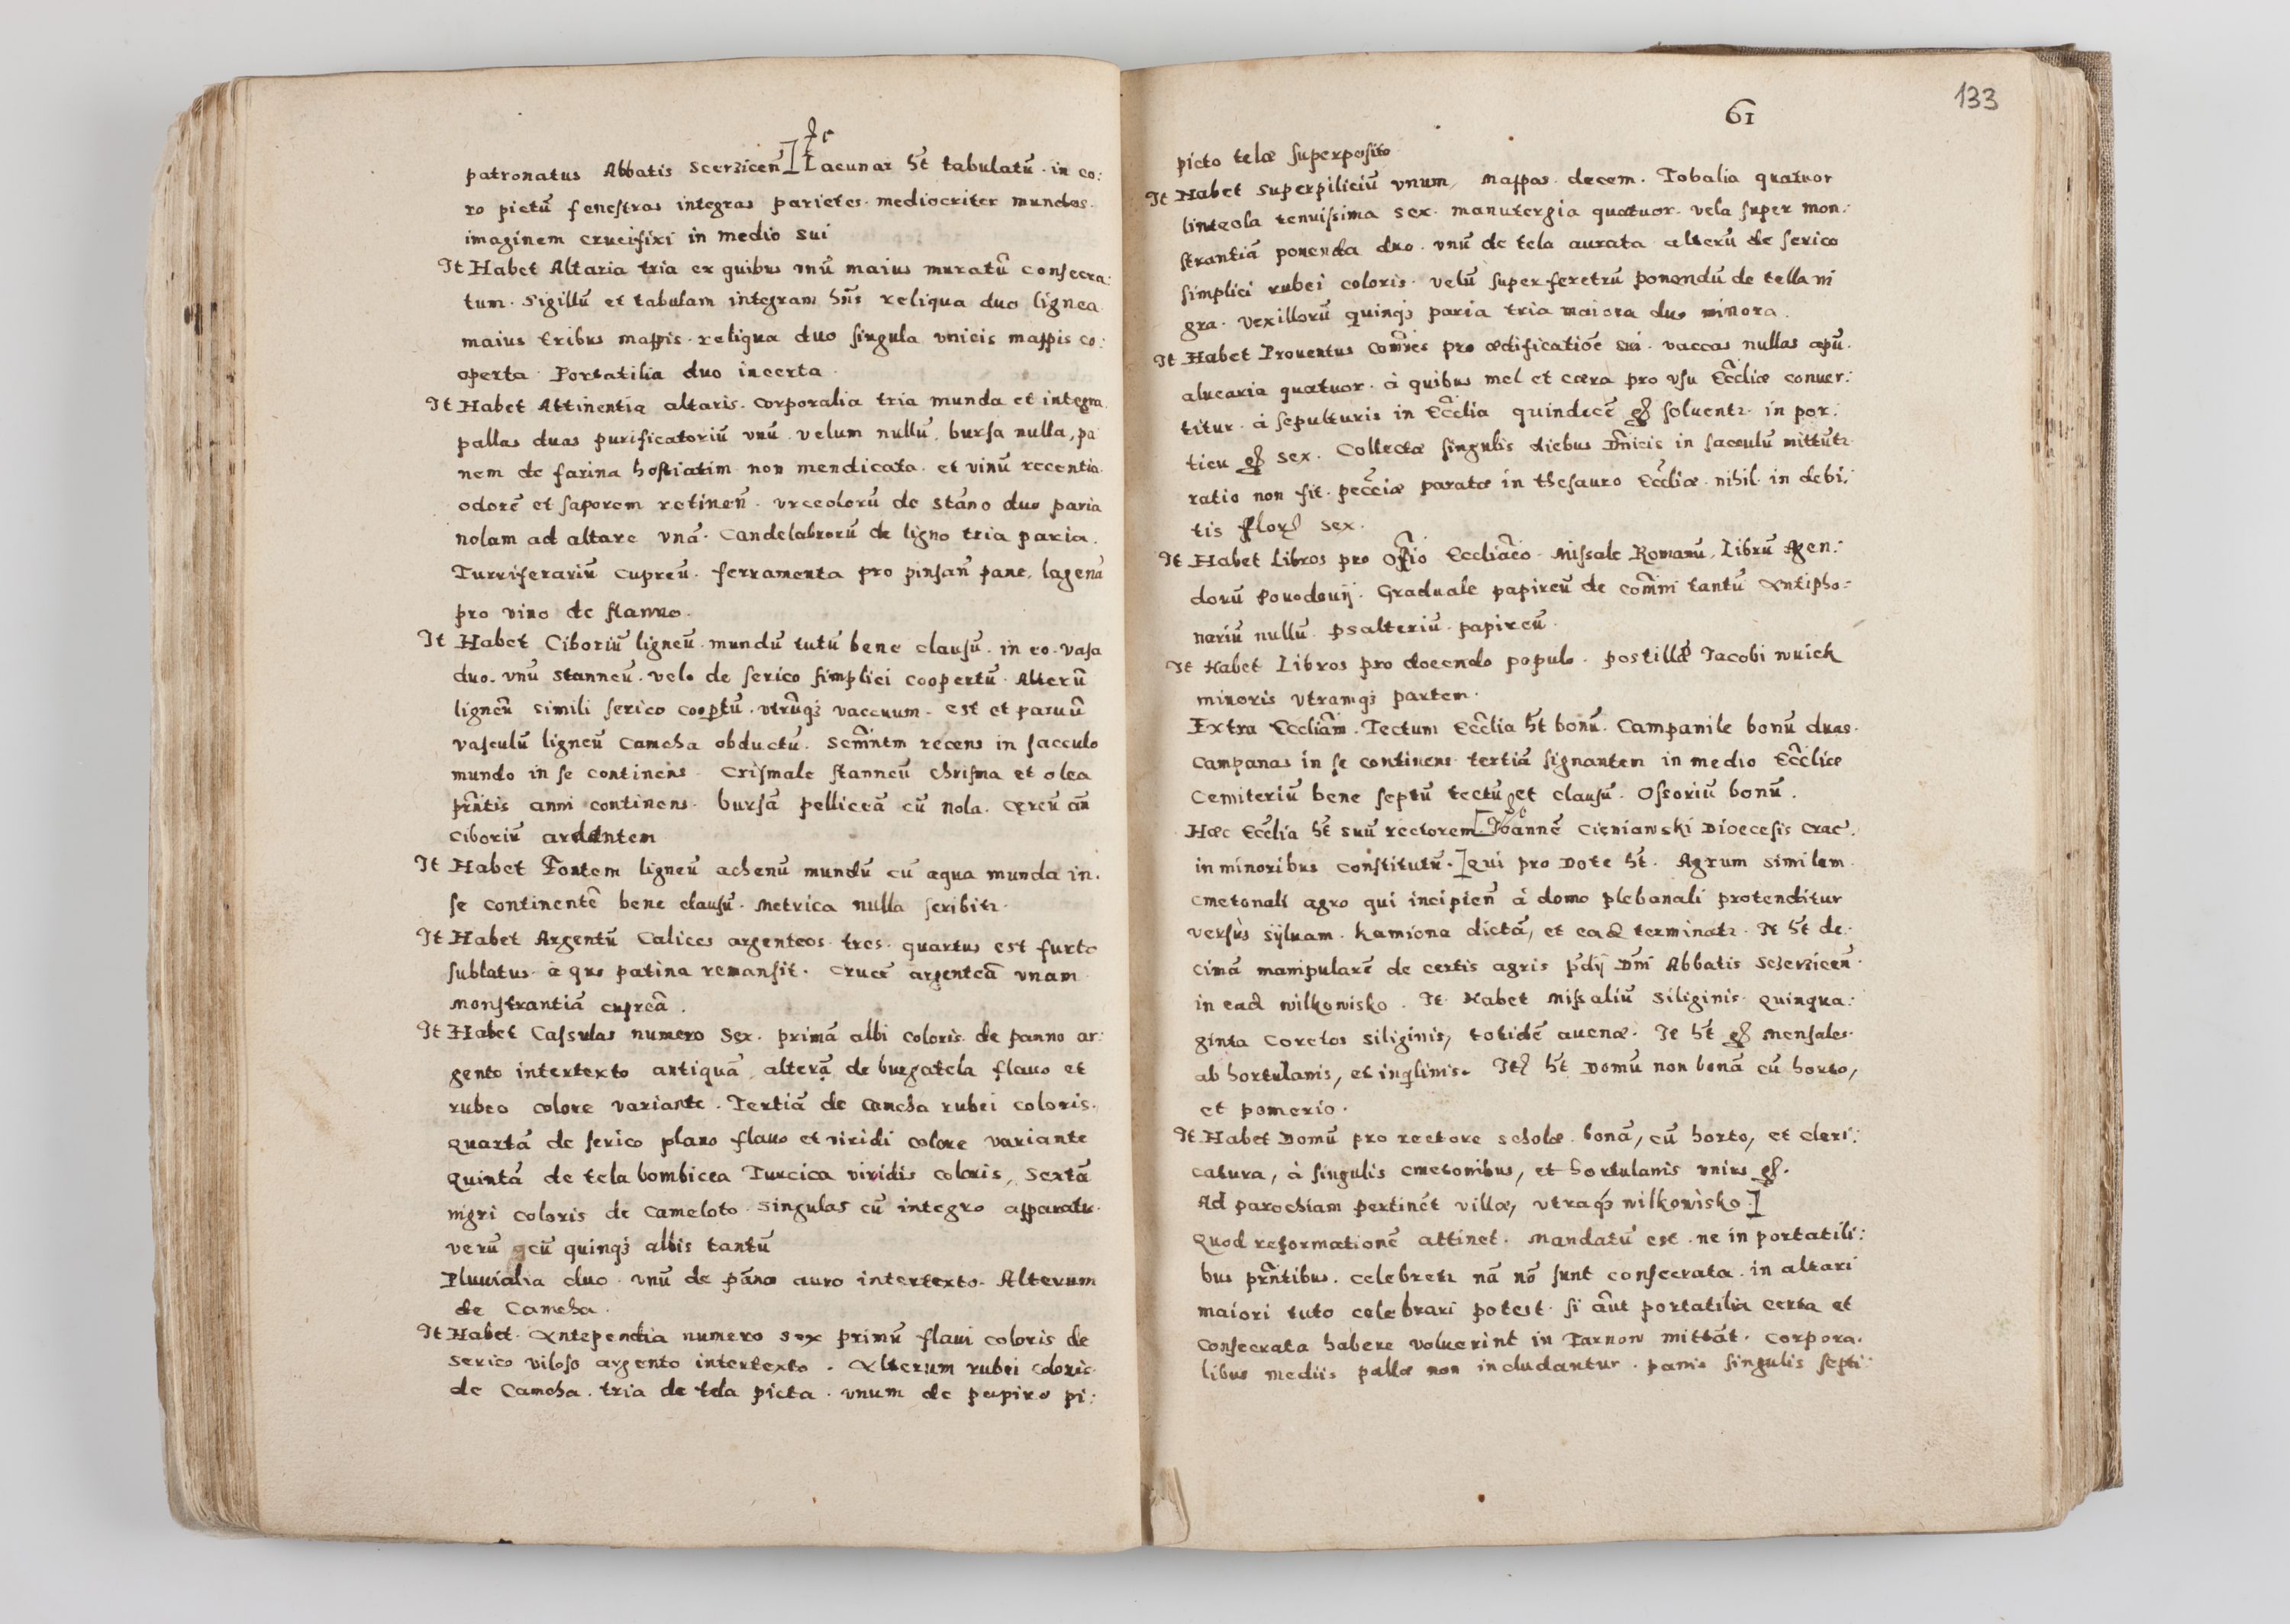 patronatus Abbatis Scerzicen̄] Lacunar h̄t tabulatū · in co:
ro pictū fenestras integras parietes · mediocriter mundos ·
imaginem crucifixi in medio sui
It Habet Altaria tria ex quibus unū maius muratū consecra:
tum · Sigillū et tabulam integram hn̄s reliqua duo lignea
maius tribus mappis · reliqua duo singula unicis mappis co:
operta · Portatilia duo incerta ·
It Habet Attinentia altaris · Corporalia tria munda et integra
pallas duas purificatoriū unū · velum nullū, bursa nulla, pa
nem de farina hostiatim non mendicata · et vinū recentia
odorē et saporem retinen̄ · urceolorū de stāno duo paria
nolam ad altare vnā · Candelabrorū de ligno tria paria ·
Turriferariū cupreū · ferramenta pro pinsan̄ pane, lagenā
pro vino de stanno ·
It Habet Ciboriū ligneū · mundū tutū bene clausū · in eo · vasa
duo · vnū stanneū · velo de serico simplici coopertū · Alterū
ligneū simili serico coop̄tū · vtrūq₃ vacuum · est et paruū
vasculū ligneū Camcha obductū · Scm̄ntm recens in sacculo
mundo in se continens · Crismale stanneū chrisma et olea
prn̄tis anni continens · bursā pelliceā cū nola · Cereū an̄
Ciboriū ardentem
It Habet Fontem ligneū achenū mundū cū aqua munda in ·
se continentē bene clausū · Metrica nulla scribitr ·
It Habet Argentū Calices argenteos · tres · quartus est furto
sublatus · à quo patina remansit · Crucē argenteā vnam
Monstrantiā cupreā ·
It Habet Cassulas numero Sex · primā albi coloris · de panno ar:
gento intertexto antiquā, alterā de burgatela flauo et
rubeo colore variante · Tertiā de Camcha rubei coloris ·
Quartā de serico plano flauo et viridi colore variante
Quintā de tela bombicea Turcica viridis coloris, Sextā
nigri coloris de Cameloto · Singulas cū integro apparatu
verū cū quinq₃ albis tantū
Pluuialia duo · vnū de pāno auro intertexto · Alterum
de Camcha ·
It Habet · Antependia numero sex primū flaui coloris de
Serico viloso argento intertexto · Alterum rubei coloris
de Camcha · tria de tela picta · vnum de papiro pi:
133
61
picto telæ superposito
It Habet Superpiliciū vnum, mappas · decem · Tobalia quatuor
linteola tenuissima sex · manutergia quatuor · vela super mon:
strantiā ponenda duo · vnū de tela aurata alterū de serico
simplici rubei coloris · velū super feretrū ponendū de tella ni
gra · Vexillorū quinq₃ paria tria maiora duo minora ·
It Habet Prouentus com̄nes pro ædificatiōe sui · vaccas nullas apū ·
aluearia quatuor · à quibus mel et cæra pro vsu Eccl̄iæ conuer:
titur · à sepulturis in Eccl̄ia quindecē gͦ soluentr · in por:
ticu gͦ sex · Collectæ singulis diebus Dn̄icis in sacculū mittūtr
ratio non fit · pecc̄iæ paratæ in thesauro Eccl̄iæ · nihil · in debi:
tis flor sex ·
It Habet Libros pro Offi͞o Eccliāco · Missale Romanū, Librū Agen:
dorū Powodouij · Graduale papireū de com̄ni tantū Antipho:
nariū nullū · psalteriū · papireū ·
It Habet Libros pro docendo populo · postillæ Jacobi wuiek
minoris vtramq₃ partem ·
Extra Eccliām · Tectum Eccl̄ia h̄t bonū · Campanile bonū duas ·
Campanas in se continens · tertiā signantem in medio Eccl̄iæ
Cemiteriū bene septū tectū et clausū · Ossoriū bonū ·
Hæc Eccl̄ia h̄t suū rectorem [Joannē Cieniawski Dioecesis Crac ·
in minoribus constitutū · ] qui pro Dote h̄t · Agrum similem
Cmetonali agro qui incipien̄ à domo plebanali protenditur
versùs syluam · Kamiona dictā, et ead terminatr · It h̄t de ·
cimā manipularē de certis agris p̄dij Dn̄i Abbatis Sczerzicen̄ ·
in ead wilkowisko · It Habet Missaliū Siliginis · quinqua:
ginta Coretos Siliginis, totidē auenæ · It h̄t gͦ mensales ·
ab hortulanis, et inq̄linis · It h̄t Domū non bonā cū horto,
et pomerio ·
It Habet Domū pro rectore scholæ · bonā, cū horto, et cleri:
catura, à singulis cmetonibus, et hortulanis vnius gͦ ·
Ad parochiam pertinēt villæ, vtraq₃ wilkowisko · ]
Quod reformationē attinet · Mandatū est · ne in portatili:
bus prn̄tibus · celebretr nā nō sunt consecrata · in altari
maiori tuto celebrari potest · si aūt portatilia certa et
Consecrata habere voluerint in Tarnow mittāt · Corpora ·
libus mediis pallæ non includantur · panis singulis septi: